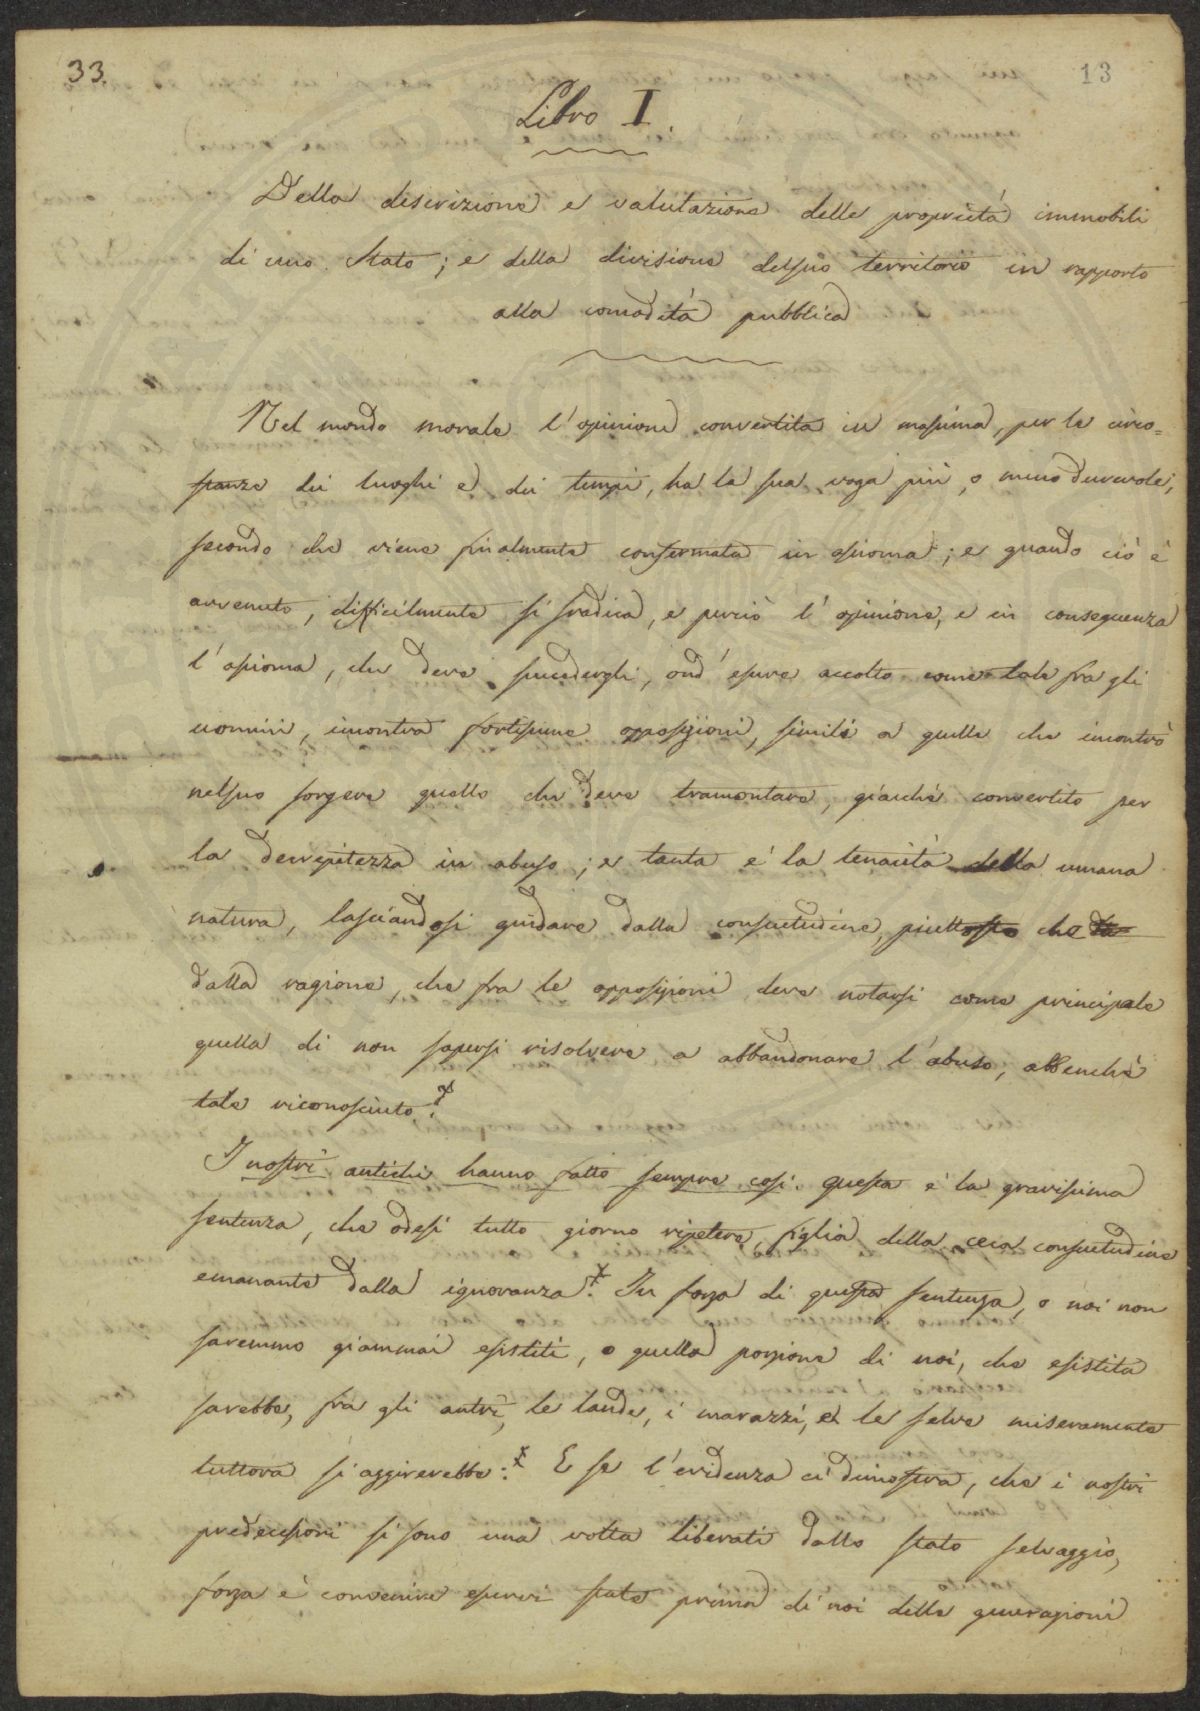 33.
13
Libro I.
Della descrizione e valutazione delle proprietà immobili
di uno Stato; e della divisione del suo territorio in rapporto
alla comodità pubblica
Nel mondo morale l'opinione convertita in massima, per le circo=
stanze dei luoghi e dei tempi, ha la sua voga più, o meno durevole,
secondo che viene finalmente confermata in assioma; e quando ciò è
avvenuto, difficilmente si sradica, e perciò l'opinione, e in conseguenza
l'assioma, che deve succedergli, ond'essere accolto come tale fra gli
uomini, incontra fortissime opposizioni, simili a quelle che incontrò
nel suo sorgere quello che deve tramontare, giacchè convertito per
la decrepitezza in abuso; e tanta e' la tenacità della umana
natura, lasciandosi guidare dalla consuetudine, piuttosto che da
dalla ragione, che fra le opposizioni deve notarsi come principale
quella di non sapersi risolvere a abbandonare l'abuso, abbenchè
tale riconosciuto.
I nostri antichi hanno fatto sempre così. Questa e' la gravissima
sentenza, che odesi tutto giorno ripetere, figlia della ceca consuetudine
emanante dalla ignoranza. In forza di questa sentenza, o noi non
saremmo giammai esistiti, o quella porzione di noi, che esistita
sarebbe, fra gli antri, le lande, i marazzi, e le selve miseramente
tuttora si aggirerebbe: E se l'evidenza ci dimostra, che i nostri
predecessori si sono una volta liberati dallo stato selvaggio,
forza è convenire esservi state prima di noi delle generazioni